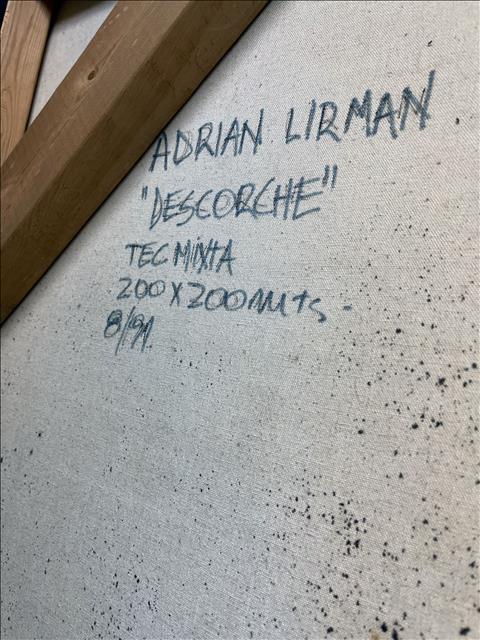 ADRIAN LIRMAN
"DESCORCHE"
TEC MIXTA
200 X 200 mts -
8/91